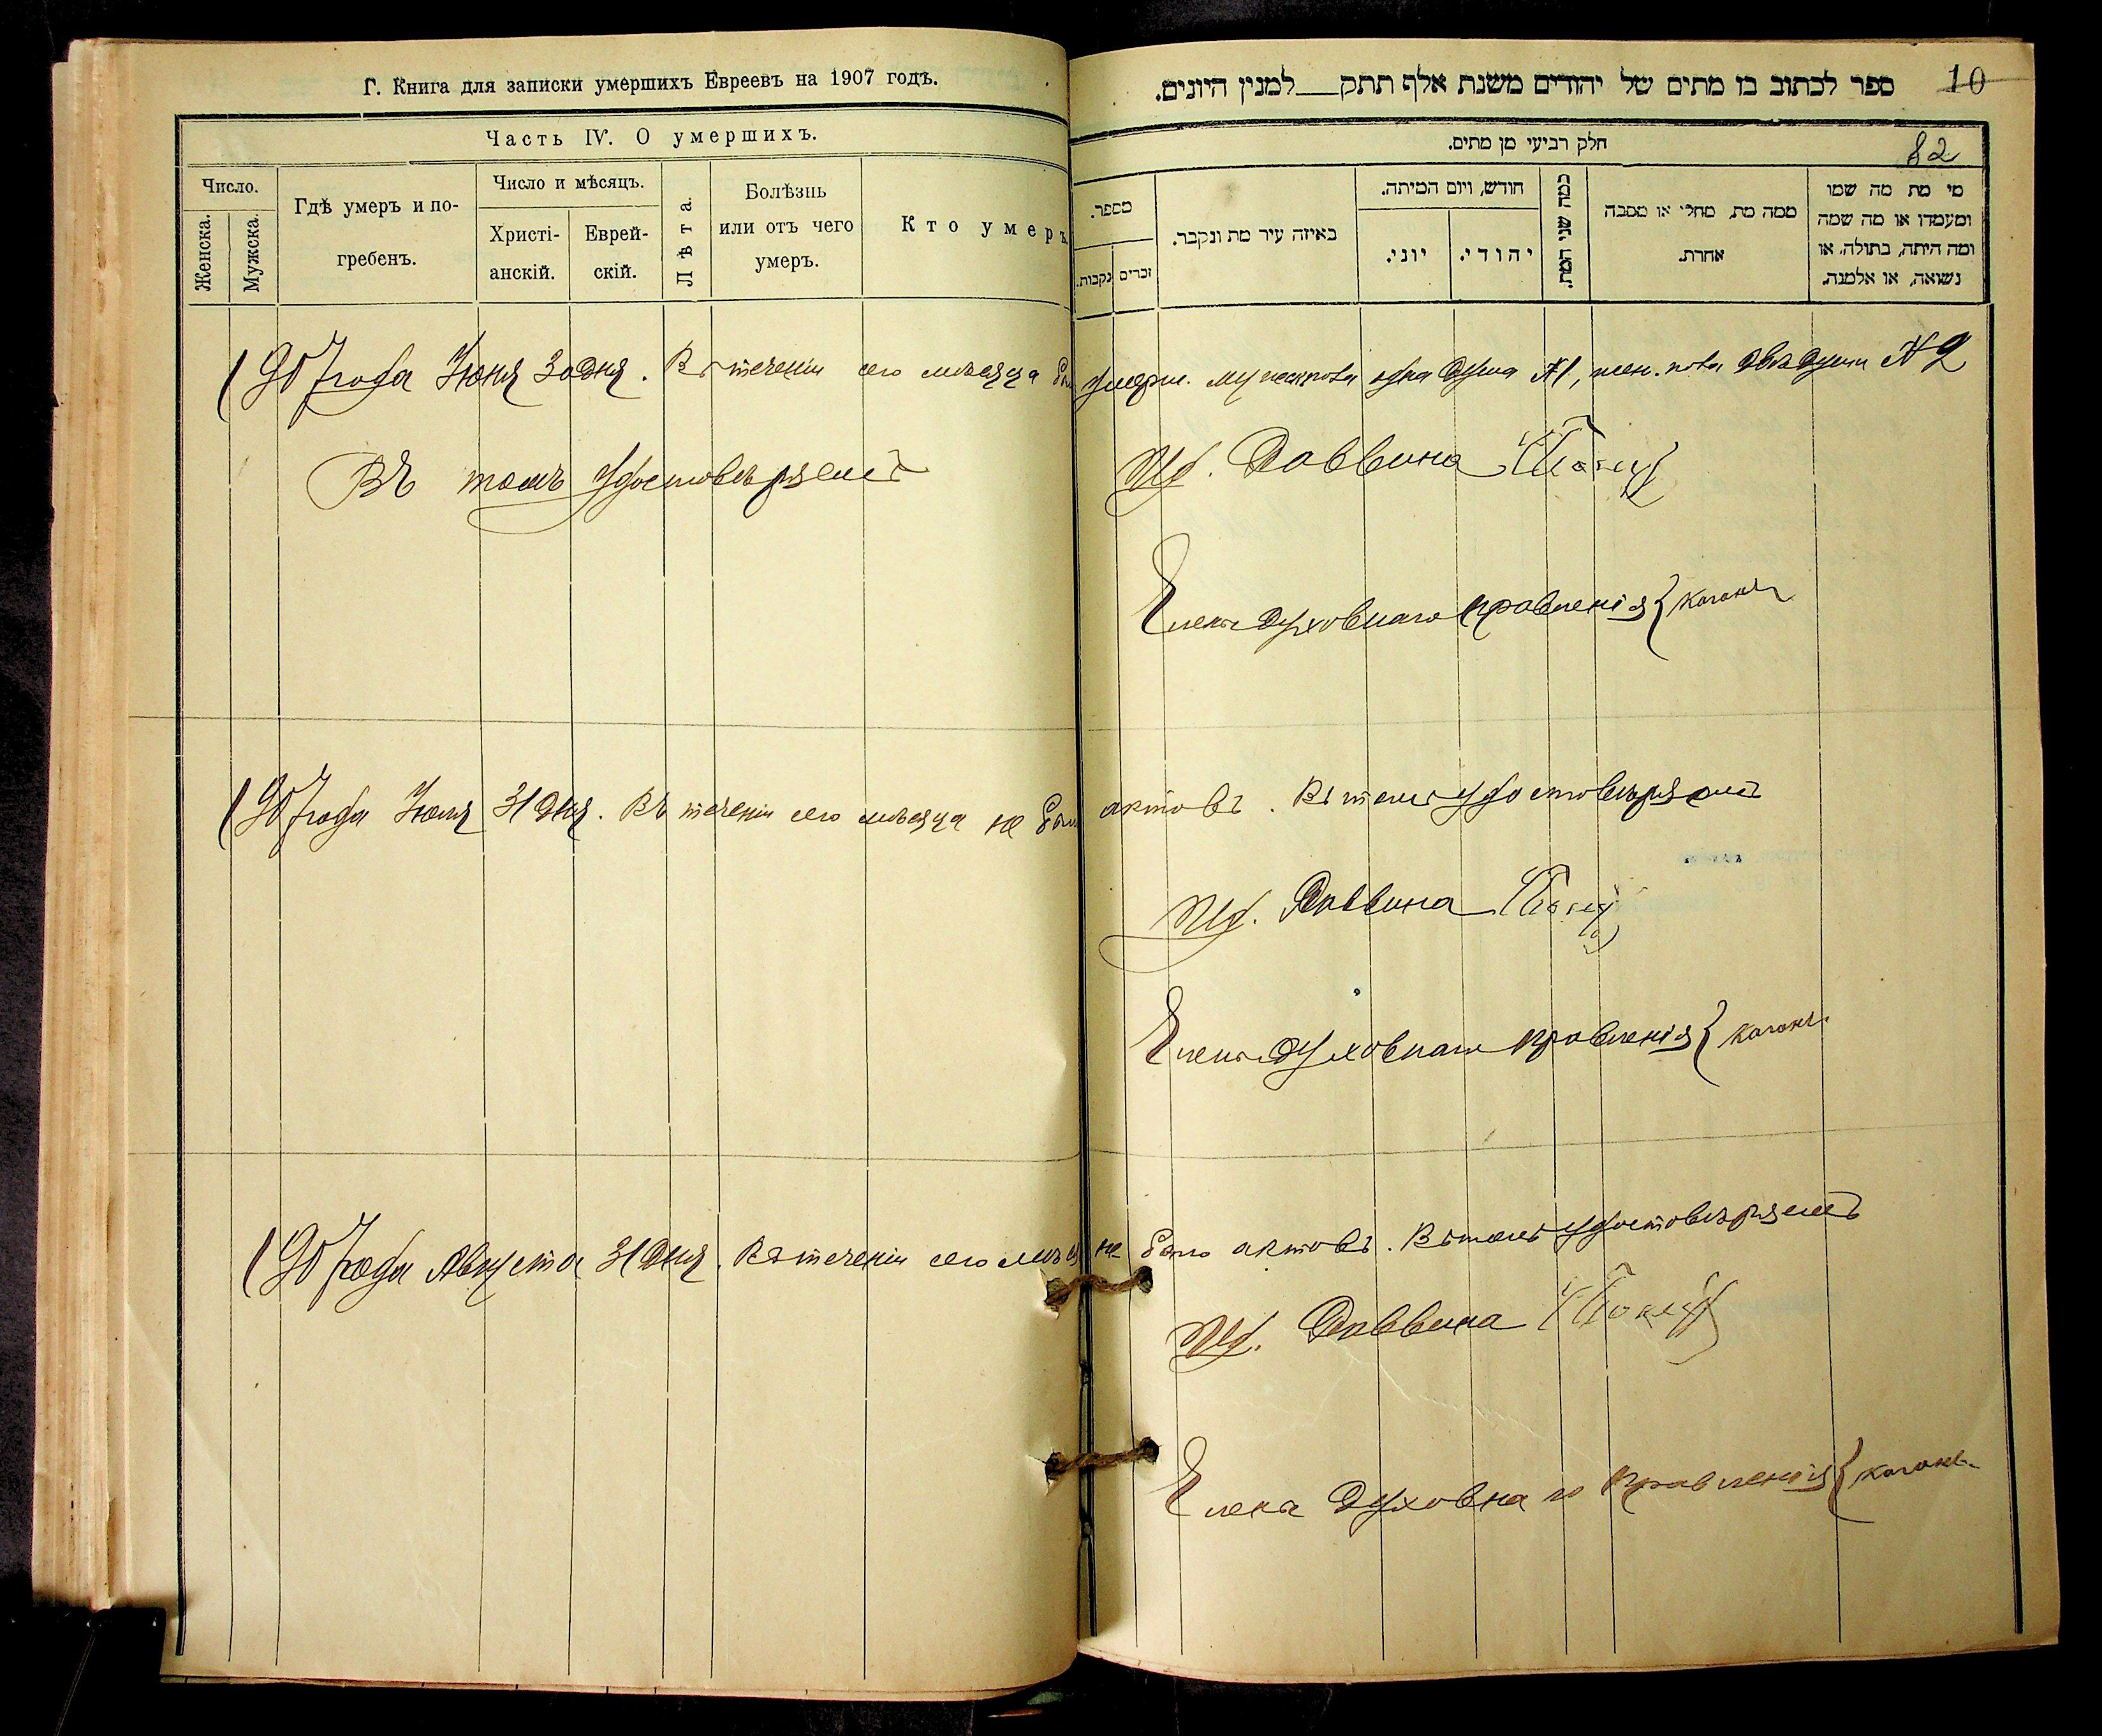 Г. Книга для записки умершихъ Евреевъ на 1907 годъ.
Часть IV. О умершихъ.
Число.
Женска.
Мужска.
Гдѣ умеръ и по-
гребенъ.
Число и мѣсяцъ.
Христі-
анскій.
Еврей-
скій.
Лѣта.
Болѣзнь
или отъ чего
умеръ.
Кто умеръ
ספר לכתוב בו מתים של יהודים משנת אלף תתק___למנין היונים.
10
חלק רביעי מן מתים.
82
מספר.
נקבות.
זכרים
באיזה עיר מת ונקבר.
חודש, ויום המיתה.
יוני.
יהודי.
כמה שני המת.
ממה מת, מחלי או מסבה
אחרת.
מי מת מה שמו
ומעמדו או מה שמה
ומה היתה, בתולה, או
נשואה, או אלמנה.
1907 года Июня 30 дня. Въ теченіи сего мѣсяца умерш. муж. пола одна душа №1, жен. пола двѣ души №2
Въ томъ удостовѣряемъ
И д. Раввина
Членъ духовнаго правленія } Каганъ
1907 года Июля 31 дня. Въ теченіи сего мѣсяца не было актовъ. Въ томъ удостовѣряемъ
И д. Раввина
Членъ духовнаго правленія } Каганъ
1907 года Августа 31 дня. Въ теченіи сего не было актовъ. Въ томъ удостовѣряемъ
И д. Раввина
Членъ духовнаго правленія } Каганъ